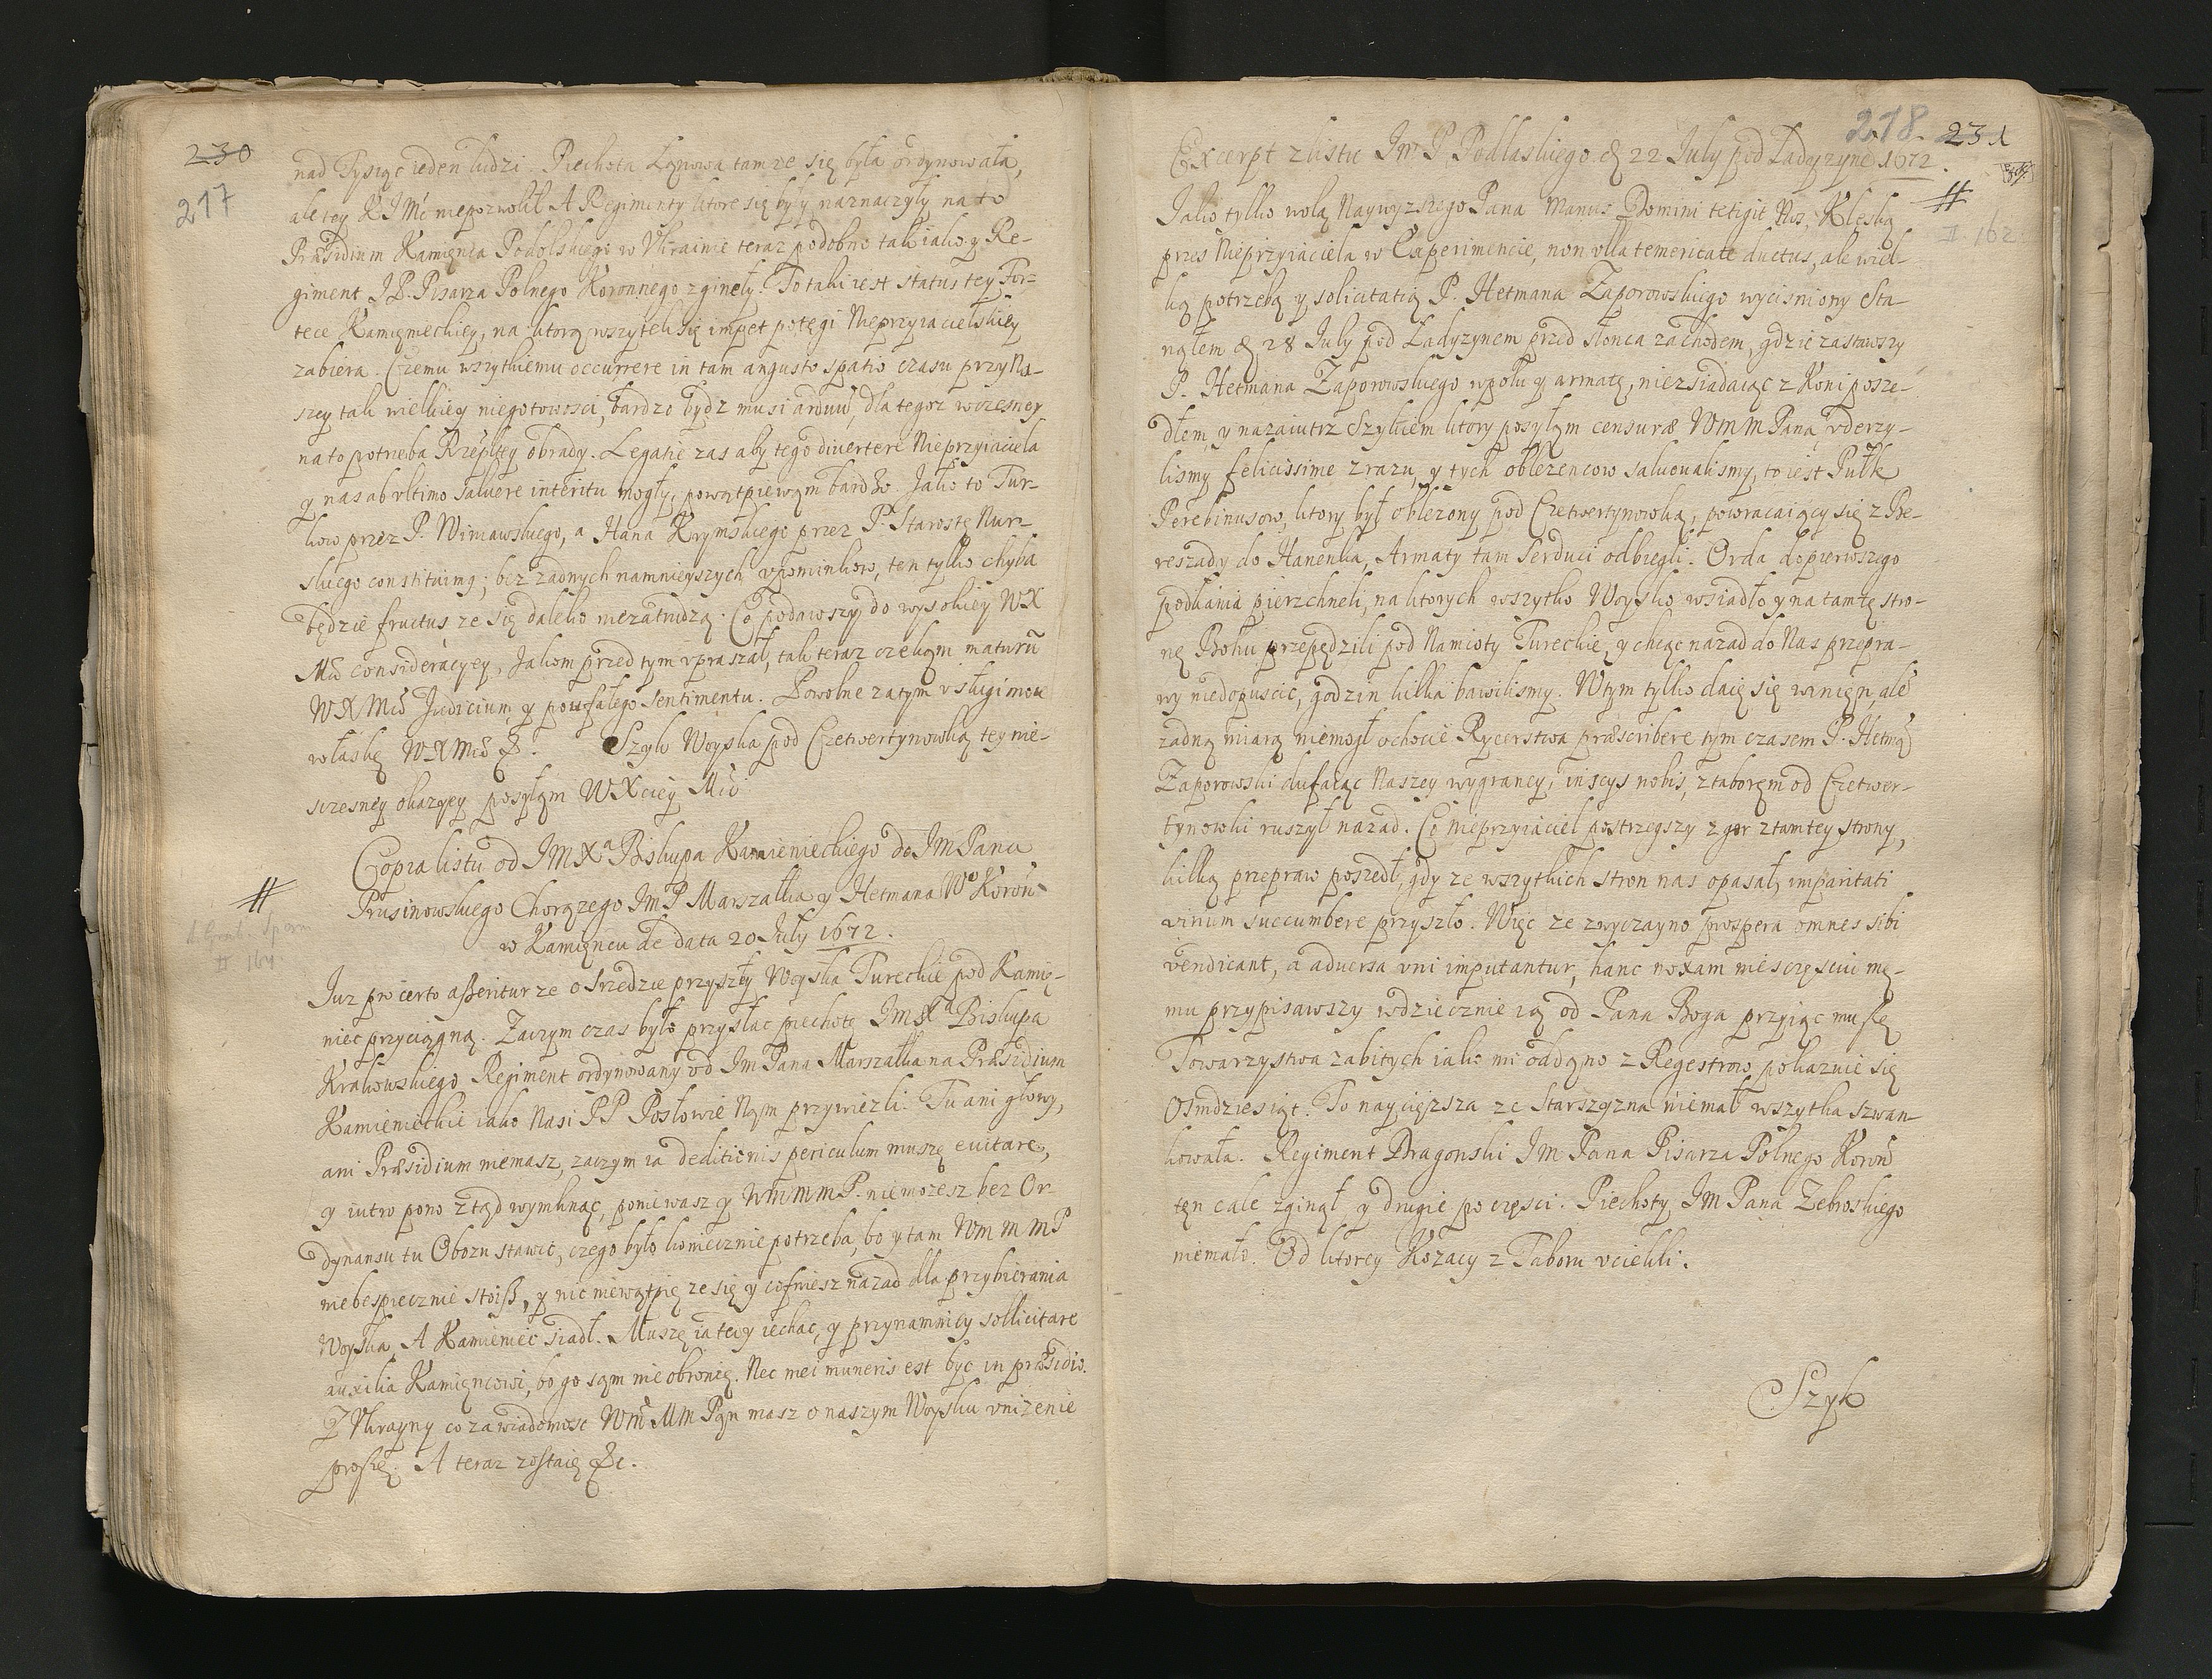 230
217
nad Tysiąc ieden ludzi. Piechota Łąnowa tamze się była ordynowała,
ale tey KJMć niepozwolił A Regimenty ktore się były naznaczyły na to
Præsidium Kamięnca Podolskiego w Vkrainie teraz podobno tak iako y Re-
giment JP. Pisarza Polnego Koronnego zginęły. To taki iest status tey For-
tece Kamięnieckiey, na ktorą wszytek się impet potęgi Nieprzyiacielskiey
zabiera. Czemu wszytkiemu occurrere in tam angusto spatio czasu przy Na-
szey tak wielkiey niegotowosci, bardzo bydz musi arduũ, dla tegoz wczesney
na to potrzeba Rzepltey obrady. Legatie zas aby tego divertere Nieprzyiaciela
y nas ab vltimo salvere interitu mogły, powątpiewąm bardzo. Jako to Tur-
kow przez P. Winiawskiego, a Hana Krymskiego przez P. Starostę Nur-
skiego constituimg; bez zadnych namnieyszych vpominkow, ten tylko chyba
będzie fructus ze się daleko niezatrudzą. Co podawszy do wysokiey WX
Mci consideracyey, Jakom przed tym vpraszał, tak teraz czekąm maturũ
WXMci Judicium y poufałego sentimentu. Powolne zatym vsługi moie
w łaskę WXMci &. Szyk Woyska pod Czetwertynowką tey nie-
sczesney okazyey posyłąm WXciey Mći
Copia listu od JMXa Biskupa Kamienieckiego do JmPana
Prusinowskiego Chorązego JmP Marszałka y Hetmana Wo Koroñ
w Kamięncu de data 20 July 1672.
#
II 161
Juz pro certo asseritur ze o Srzedzie przyszłey Woyska Tureckie pod Kamię-
niec przyciągną. Zaczym czas było przysłac piechotę JmXa Biskupa
Krakowskiego Regiment ordynowany od Jm Pana Marszałka na Præsidium
Kamienieckie iako Nasi PP Posłowie Nąm przywiezli. Tu ani głowy,
ani Præsidium niemasz, zaczym ia deditionis periculum muszę evitare,
y iutro pono ztąd wymknąc, poniewasz y WmmmP. niemozesz bez Or-
dynansu tu Obozu stawic, czego było koniecznie potrzeba, bo y tam Wm m mP
niebespiecznie stoisz, y nic niewątpię ze się y cofniesz nazad dla przybierania
Woyska, A Kamieniec siadł. Muszę ia tedy iechac, y przynamniey sollicitare
auxilia Kamięncowi, bo go sąm nie obronię. Nec mei muneris est byc in præsidio.
Z Vkrayny co za wiadomosc Wm̃ Mm Pąn masz o naszym Woysku vnizenie
proszę. A teraz zostaię &c.
218. 231
Excerpt z listu Jm P Podlaskiego d 22 July pod Ładyzynẽ 1672.
#
II. 162
Jako tylko wolą Naywyzszego Pana Manus Domini tetigit Nos, Klęską
przes Nieprzyiaciela w Experimencie, non vlla temeritate ductus, ale wiel-
ką potrzebą y solicitatią P. Hetmana Zaporowskiego wycisniony Sta-
nąłem d 28 July pod Ładyzynem przed słonca zachodem, gdzie zastawszy
P. Hetmana Zaporowskiego wpołu y armatę, niezsiadaiąc z Koni posze-
dłem y nazaiutrz Szykiem ktory posyłąm censuræ WmmPana, vderzy-
lismy felicissime zrazu, y tych oblezencow salvovalismy, to iest Pułk
Perebinusow, ktory był oblezony pod Czetwertynowką, powracaiący się z Be-
reszady do Hanenka, Armaty tam Serduci odbiegli. Orda dopierwszego
podkania pierzchneli, na ktorych wszytko Woysko wsiadło y na tamtę stro-
nę Bohu przepędzili pod Namioty Tureckie, y chcąc nazad do Nas przepra-
wy niedopuscic, godzin kilka bawilismy. Wtym tylko daię się winięn, ale
zadną miarą niemogł ochocie Rycerstwa præscribere tym czasem P. Hetmã
Zaporowski dufaiąc Naszey wygraney, inscys nobis, z taborąm od Czetwer-
tynowki ruszył nazad. Co Nieprzyiaciel postrzegszy z gor z tamtey strony,
kilką przepraw poszedł, gdy ze wszytkich stron nas opasał, imparitati
virium succumbere przyszło. Więc ze zwyczayno prospera omnes sibi
vendicant, a adversa vni imputantur, hanc noxam niesczęsciu me-
mu przypisawszy wdziecznie ią od Pana Boga przyiąc muszę
Towarzystwa zabitych iako mi oddąno z Regestrow pokazuie się
Osmdziesiąt. To naycięższa ze Starszyzna niemal wszytka szwan-
kowała. Regiment Dragonski Jm Pana Pisarza Polnego Koroñ
ten cale zginął y drugie po częsci. Piechoty Jm Pana Zebroskiego
niemało. Od ktorey Kozacy z Taboru vciekli.
Szyk